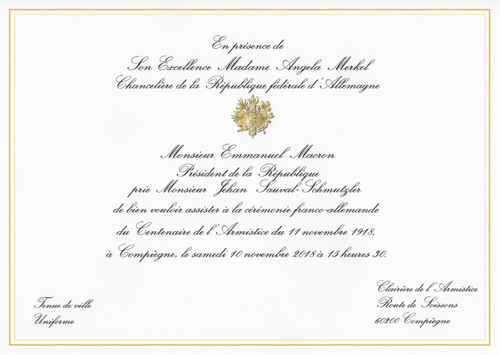 En présence de
Son Excellence Madame Angela Merkel
Chancelière de la République fédérale d'Allemagne
Monsieur Emmanuel Macron
Président de la République
prie Monsieur Jehan Sauval-Schmutzler
de bien vouloir assister à la cérémonie franco-allemande
du Centenaire de l'Armistice du 11 novembre 1918,
à Compiègne, le samedi 10 novembre 2018 à 15 heures 30.
Tenue de ville
Uniforme
Clairière de l'Armistice
Route de Soissons
60200 Compiègne